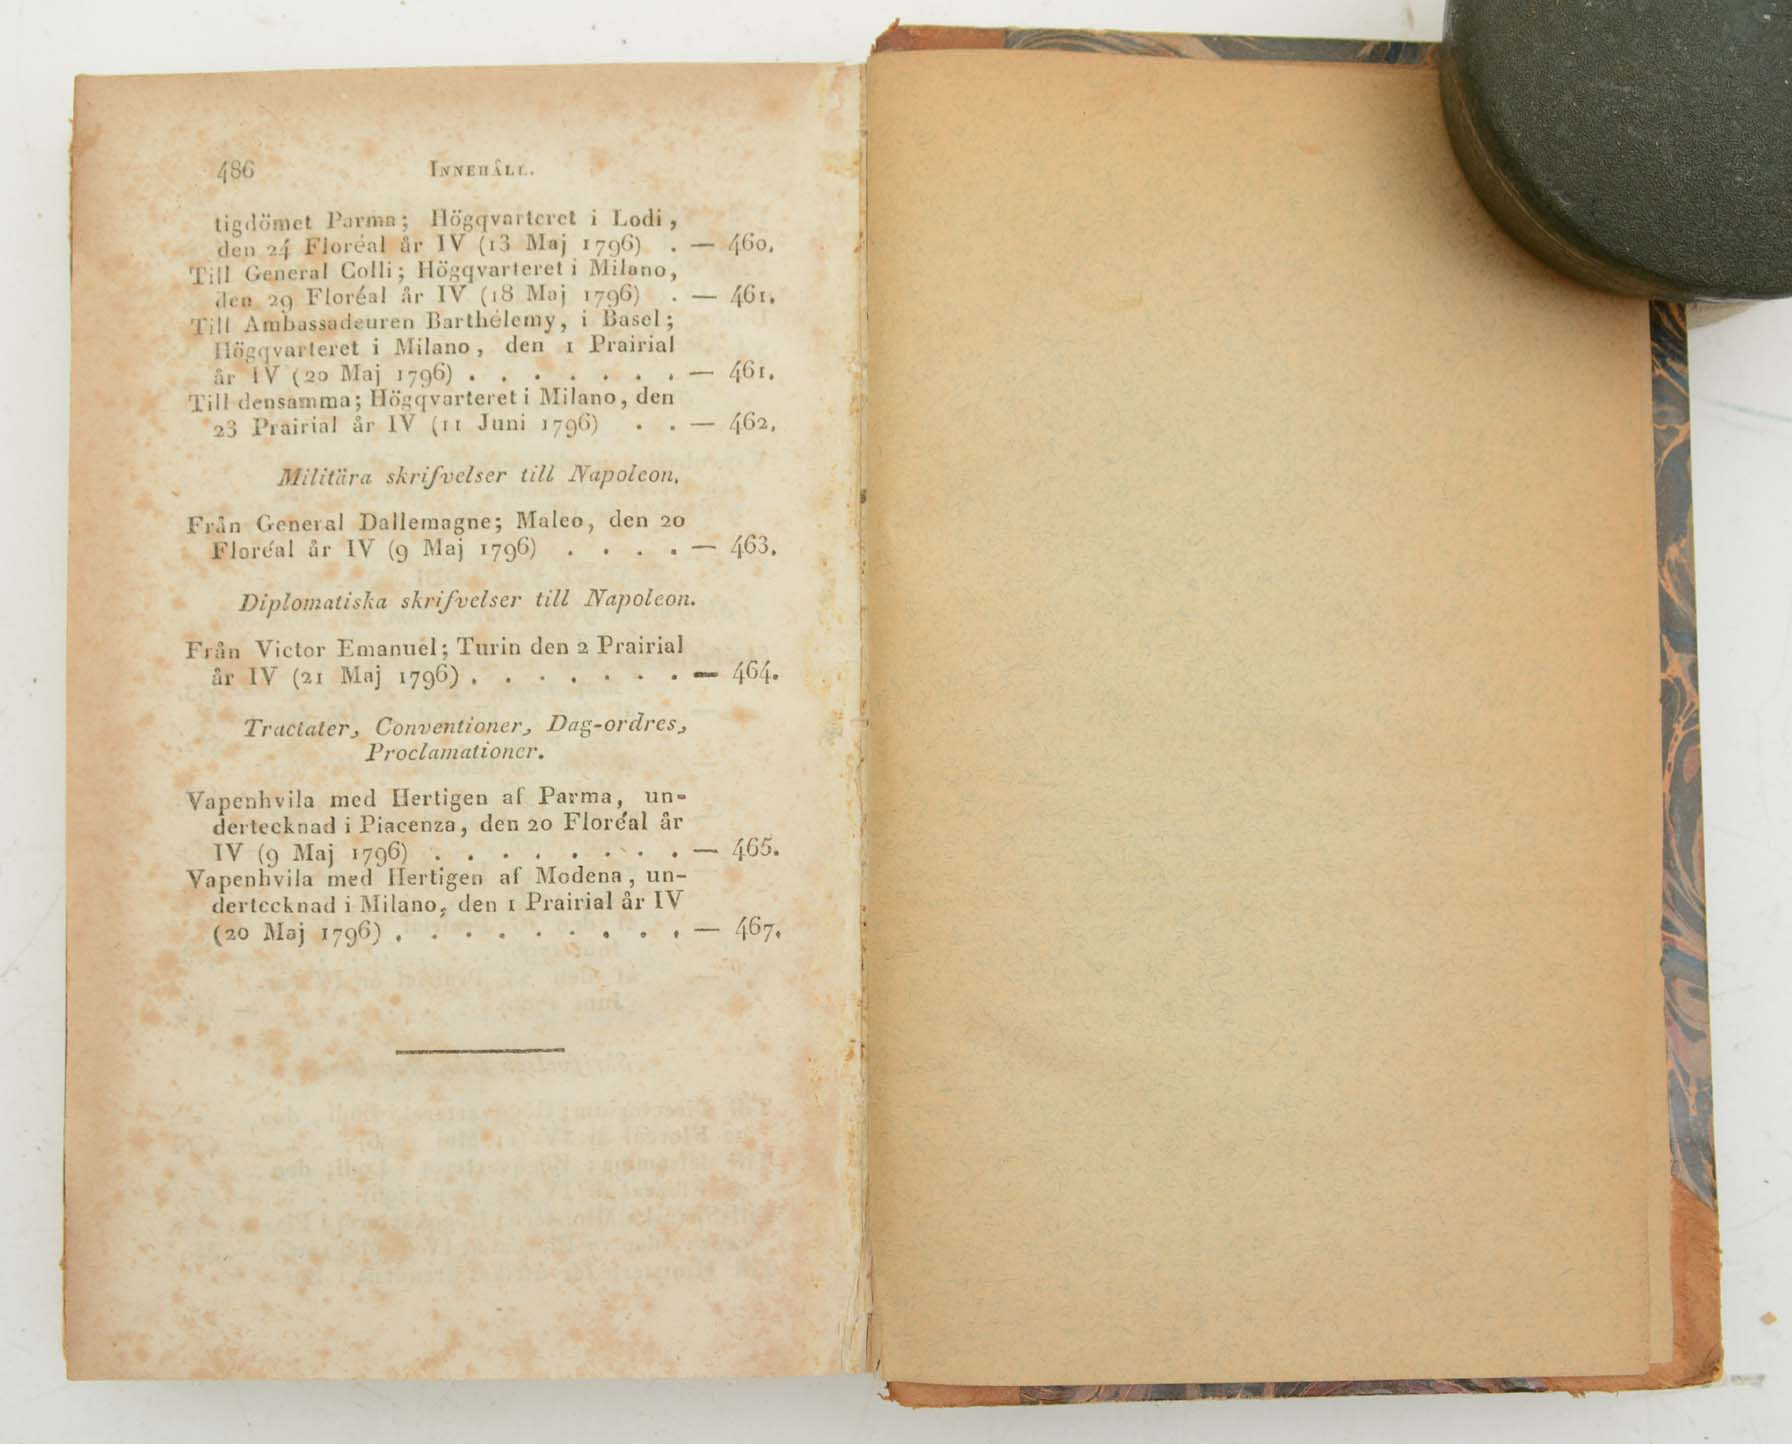 486 INNEHÅLL.
tigdömet Parma; Högqvarteret i Lodi,
den 24 Floréal år IV (13 Maj 1796) . — 460.
Till General Colli; Högqvarteret i Milano,
den 29 Floréal år IV (18 Maj 1796) . — 461.
Till Ambassadeuren Barthélemy, i Basel;
Högqvarteret i Milano, den 1 Prairial
år IV (20 Maj 1796) . . . . . . . — 461.
Till densamma; Högqvarteret i Milano, den
23 Prairial år IV (11 Juni 1796) . . — 462.
Militära skrifvelser till Napoleon.
Från General Dallemagne; Maleo, den 20
Floréal år IV (9 Maj 1796) . . . . — 463.
Diplomatiska skrifvelser till Napoleon.
Från Victor Emanuel; Turin den 2 Prairial
år IV (21 Maj 1796) . . . . . . . — 464.
Tractater, Conventioner, Dag-ordres,
Proclamationer.
Vapenhvila med Hertigen af Parma, un-
dertecknad i Piacenza, den 20 Floréal år
IV (9 Maj 1796) . . . . . . . . — 465.
Vapenhvila med Hertigen af Modena, un-
dertecknad i Milano, den 1 Prairial år IV
(20 Maj 1796) . . . . . . . . . — 467.